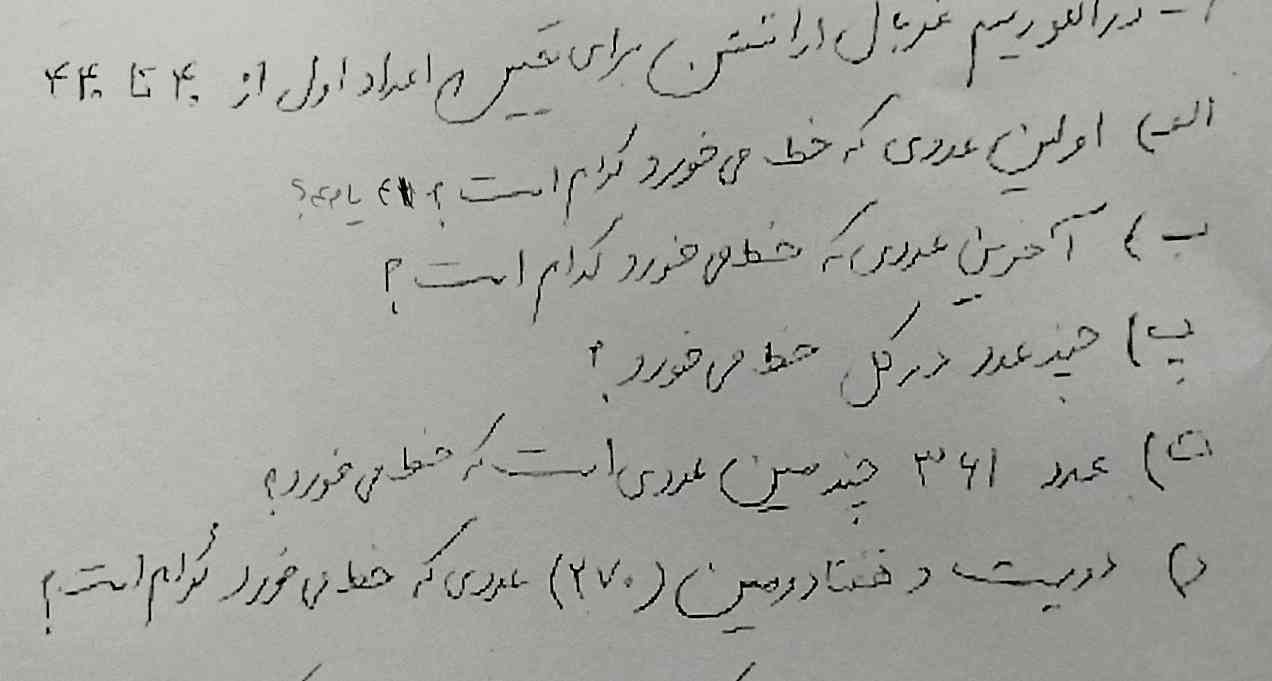 ۱- در الگوریتم غربال اراتستن برای تعیین اعداد اول از ۴۰ تا ۴۴۰
الف) اولین عددی که خط می خورد کدام است؟
ب) آخرین عددی که خط می خورد کدام است؟
پ) چند عدد در کل خط می خورد؟
ت) عدد ۳۶۱ چندمین عددی است که خط می خورد؟
دویست و هفتادومین (۲۷۰) عددی که خط می خورد کدام است؟